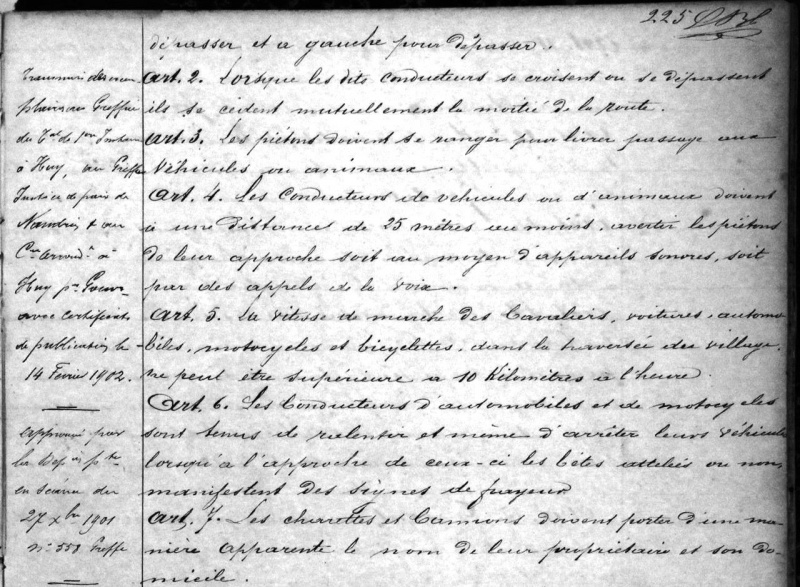 225
dépasser et a gauche pour dépasser.
Art. 2. Lorsque les dits conducteurs se croisent ou se dépassent
ils se cedent mutuellement la moitié de la route.
Art. 3. Les piétons doivent se ranger pour livrer passage aux
véhicules ou animaux.
Art. 4. Les conducteurs de vehicules ou d'animaux doivent
à une distances de 25 mètres au moins, avertir les piétons
de leur approche soit au moyen d'appareils sonores, soit
par des appels de la voix.
Art. 5. La vitesse de marche des Cavaliers, voitures, automo-
biles, motocycles et bicyclettes, dans la traversée du village,
ne peut être supérieure a 10 Kilomètres a l'heure.
Art. 6. Les Conducteurs d'automobiles et de motocycles
sont tenus de ralentir et même d'arrêter leurs véhicules
lorsqu'a l'approche de ceux-ci les bêtes attelées ou non,
manifestent des signes de frayeur.
Art. 7. Les charrettes et Camions doivent porter d'une ma-
nière apparente le nom de leur propriétaire et son do-
micile.
Transmis des exem
plaires au Greffe
du de 1er
à Huy, au Greffe
Justice de paix de
Nandrin & au
Cre Arrondt à
Huy pr Gouvr
avec certificat
de publication le
14 Fevrier 1902.
Approuvé par
la Dépon pte
en séance du
27 Xbre 1901
No 558 Greffe